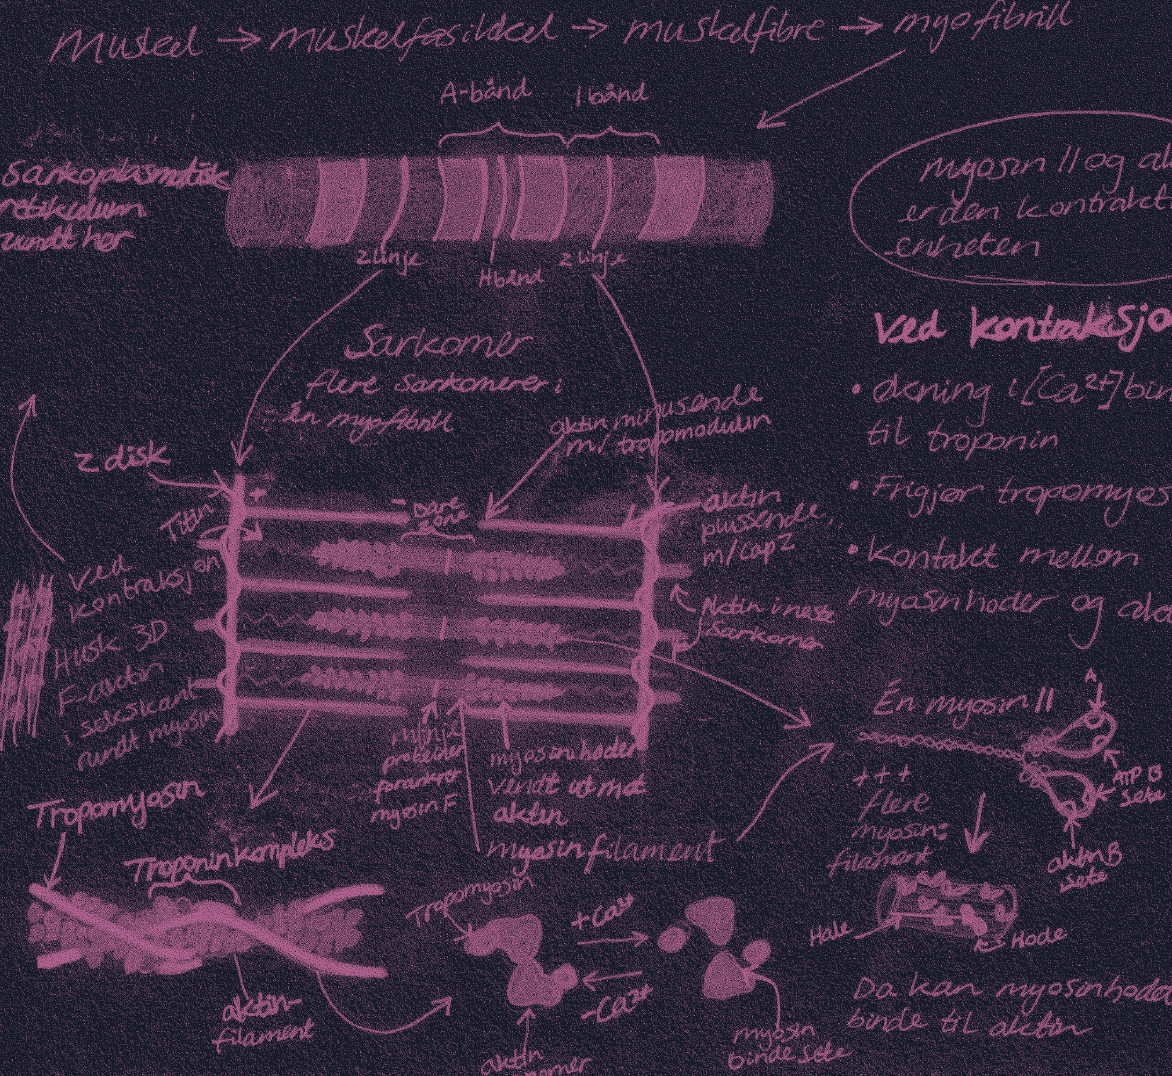 Muskel → muskelfasikkel → muskelfibre → myofibrill
A-bånd
I bånd
Sarkoplasmatisk
retikulum
rundt her
Z linje
H bånd
Z linje
myosin II og ak
er den kontrakt
enheten
Sarkomer
flere sarkomerer i
én myofibrill
Ved kontraksjo
• økning i [Ca²⁺] bin
til troponin
• Frigjør tropomyos
• Kontakt mellom
myosinhoder og akt
aktin minusende
m/ tropomodulin
Z disk
Titin
+
-
bare
zone
aktin
plussende,
m/ cap Z
Aktin i neste
Sarkomer
Ved
kontraksjon
Husk 3D
F-aktin
i sekskant
rundt myosin
M linje
proteiner
forankrer
myosin F
myosinhoder
vendt ut mot
aktin
myosinfilament
Én myosin II
ATP B
sete
aktin B
sete
+++
flere
myosin:
filament
Hale
Hode
Da kan myosinhoder
binde til aktin
Tropomyosin
Troponinkompleks
aktin-
filament
Tropomyosin
+Ca²⁺
-Ca²⁺
aktin
myosin
binde sete